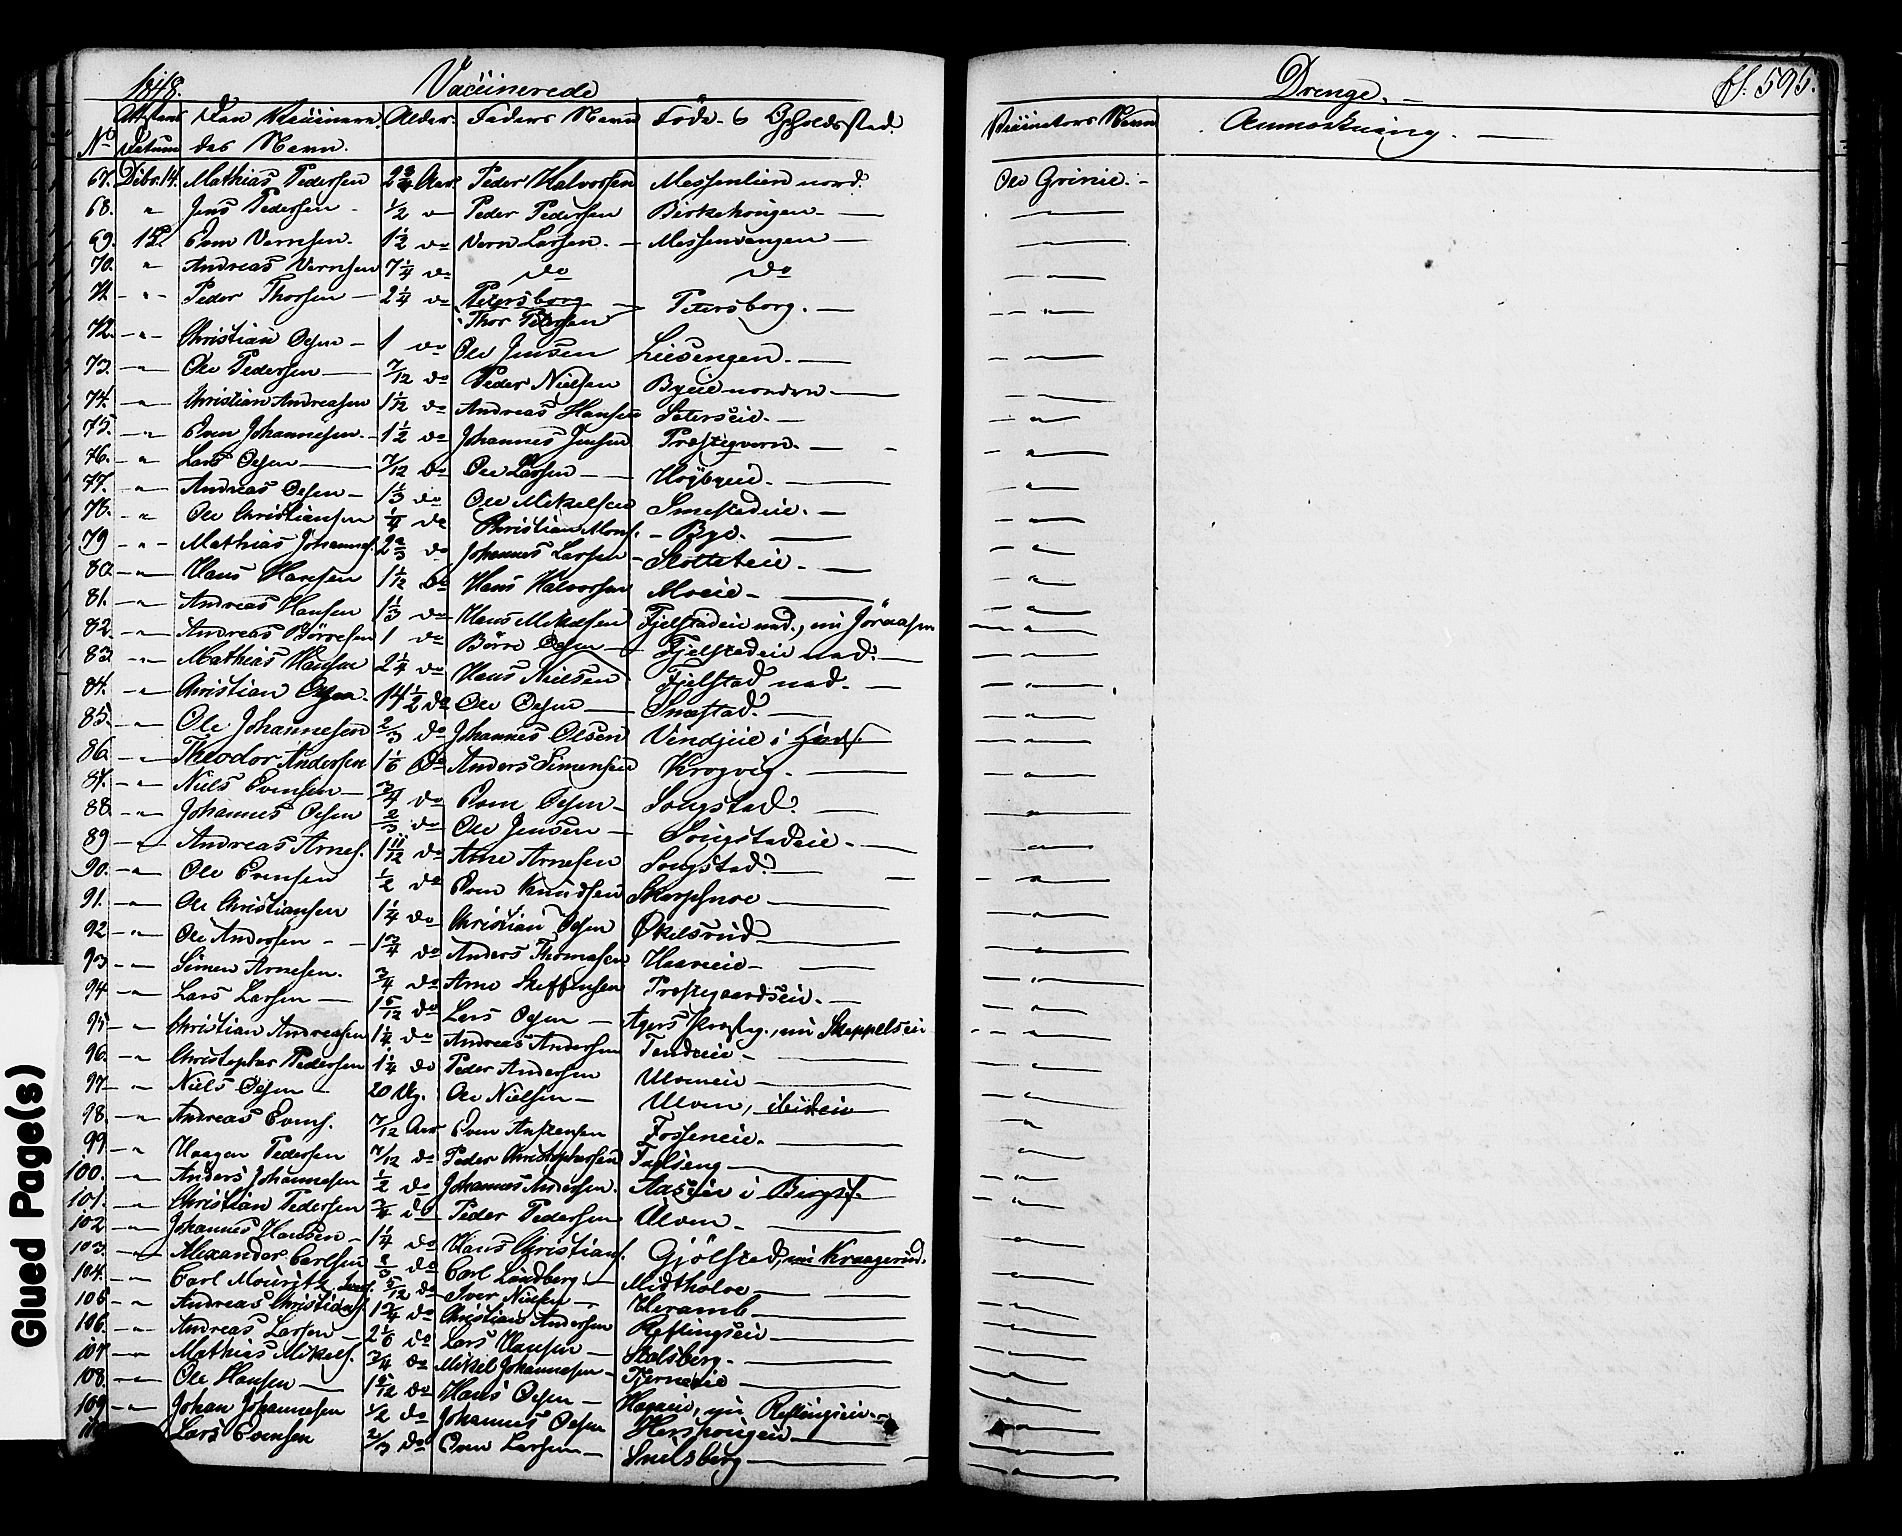 1848. Vaccinerede
Drenge. fl. 595.
No Attestens Datum Den Vaccineredes Navn. Alder. Faders Navn Føde- & Opholdssted. Vaccinators Navn Anmærkning.
67. Dcbr. 14. Mathias Pedersen Aar Peder Halvorsen Messenlien nord. Ole Grinie.
68. " Jens Pedersen 1/2 " Peder Pedersen Birkehougen
69. Even Vernsen. 1 1/2 do Vern Larsen. Messenvangen
70. " Andreas Vernsen 7 1/4 do do do
71. " Peder Thorsen 2 1/4 do Petersborg Thor Petersen Petersborg.
72. " Christian Olsen 1 do Ole Jensen Liesengen.
73. " Ole Pedersen 7/12 do Peder Nielsen Byeie nordre
74. " Christian Andreasen 1 1/12 do Andreas Hansen Seterseie.
75. " Even Johannesen. 1 1/2 do Johannes Jensen Prestqvern.
76. " Lars Olsen 7/12 do Ole Larsen Høybyeie.
77. " Andreas Olsen 1 1/3 do Ole Mikelsen Smestadeie.
78. " Ole Christiansen 1/4 do Christian Mons. Bye.
79 " Mathias Johannes. 2 2/3 do Johannes Larsen Slotteteie.
80 " Hans Hansen 1 1/12 do Hans Halvorsen Moeie
81. " Andreas Hansen 1 1/3 do Hans Mikelsen Fjelstadeie ned., nu Jøraasen
82. " Andreas Børresen 1 do Børre Olsen Fjelstadeie ned.
83 " Mathias Hansen 2 1/4 do Hans Nielsen Fjelstad ned.
84. " Christian Olsen. 14 1/2 do Ole Olsen Smestad.
85. " Ole Johannesen 2/3 do Johannes Olsen Vendjeie i
86. " Theodor Andersen 1 1/6 do Anders Simensen Krogvig.
87. " Niels Evensen 3/4 do Even Olsen Sougstad.
88. " Johannes Olsen 2/3 do Ole Jensen Sougstadeie.
89 " Andreas Arnes. 1 11/12 do Arne Arnesen Sougstad.
90. " Ole Evensen 1/2 do Even Knudsen Skarpsnoe
91. " Ole Christiansen 1 1/4 do Christian Olsen Økelsrud
92 " Ole Andersen 1 3/4 do Anders Thomasen Haaveie
93 " Simen Arnesen. 3/4 do Arne Steffensen Prestgaardseie.
94 " Lars Larsen 1 5/12 do Lars Olsen Agers Præstg., nu Skeppelseie
95 " Christian Andreasen 1 1/4 do Andreas Andersen Tandeeie
96. " Christopher Pedersen 1 1/4 do Peder Andersen Ulveneie
97 " Niels Olsen 20 Ug. Ole Nielsen Ulven, ibideie
98. " Andreas Evens. 7/12 Aar Even Anstensen Fosseneie.
99 " Haagen Pedersen 7/12 do Peder Christophersen
100. " Anders Johannesen 1/2 do Johannes Andersen. Aaseeie i Bergs.
101. " Christian Pedersen 3/4 do Peder Pedersen Ulven
102 " Johannes Hansen 1 1/4 do Hans Christians. Gjølstad, nu Kraagerud.
103. " Alexander Carlsen 2/3 do Carl Landberg Midtholve
104. " Carl Mouritz Ivers. 5/12 do Iver Nielsen Heramb
105 " Andreas Christians. 1 3/4 do Christian Andersen Reflingseie
106. " Andreas Larsen 2 1/6 do Lars Hansen Stalsberg.
107. " Mathias Mikels. 3/4 do Mikel Johannesen Tjerneeie
108. " Ole Hansen 1 5/12 do Hans Olsen Hageeie, nu Reflingseie
109 " Johan Johannesen 1/2 do Johannes Olsen Hershougen
110 Lars Evensen 2/3 do Even Larsen Snelsberg
Glued Page(s)